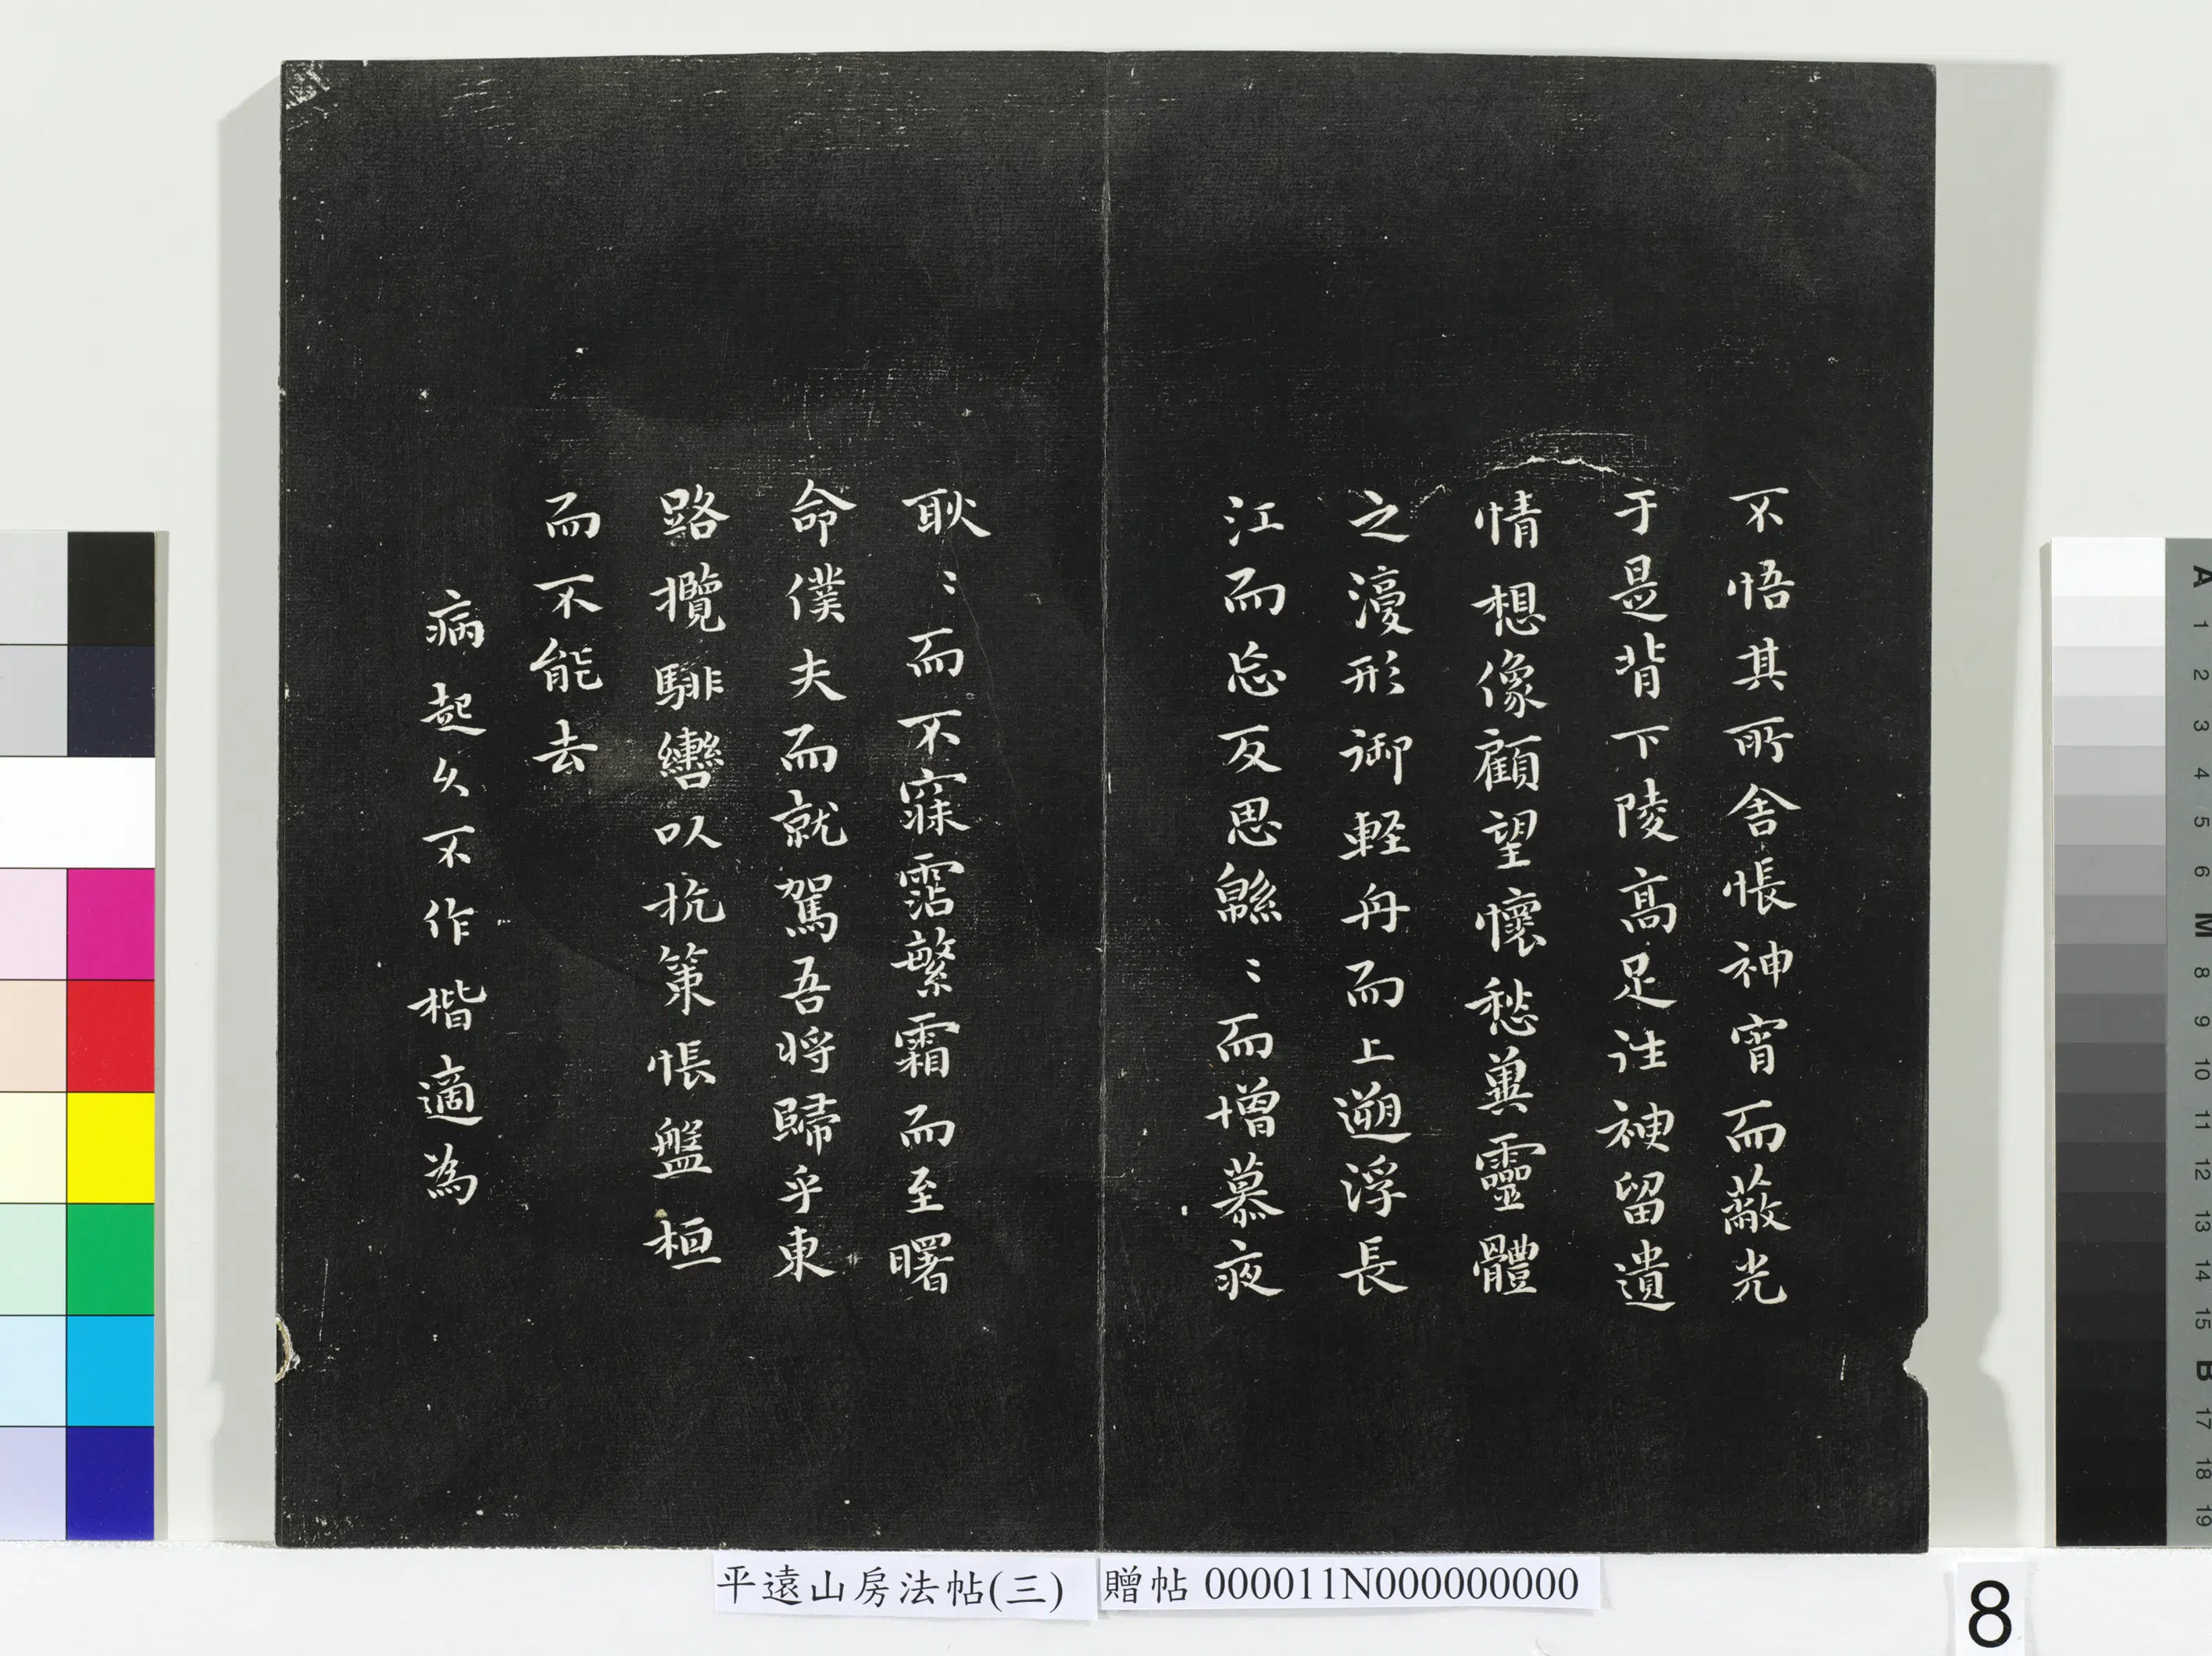 不悟其所舍悵神宵而蔽光
于是背下陵高足往神留遺
情想像顧望懷愁冀靈體
之復形御輕舟而上遡浮長
江而忘反思緜〻而增慕夜
耿〻而不寐霑繁霜而至曙
命僕夫而就駕吾將歸乎東
路攬騑轡以抗策悵盤桓
而不能去
病起久不作楷適為
平遠山房法帖(三)
贈帖 000011N000000000
8
A
1
2
3
4
5
6
M
8
9
10
11
12
13
14
15
B
17
18
19